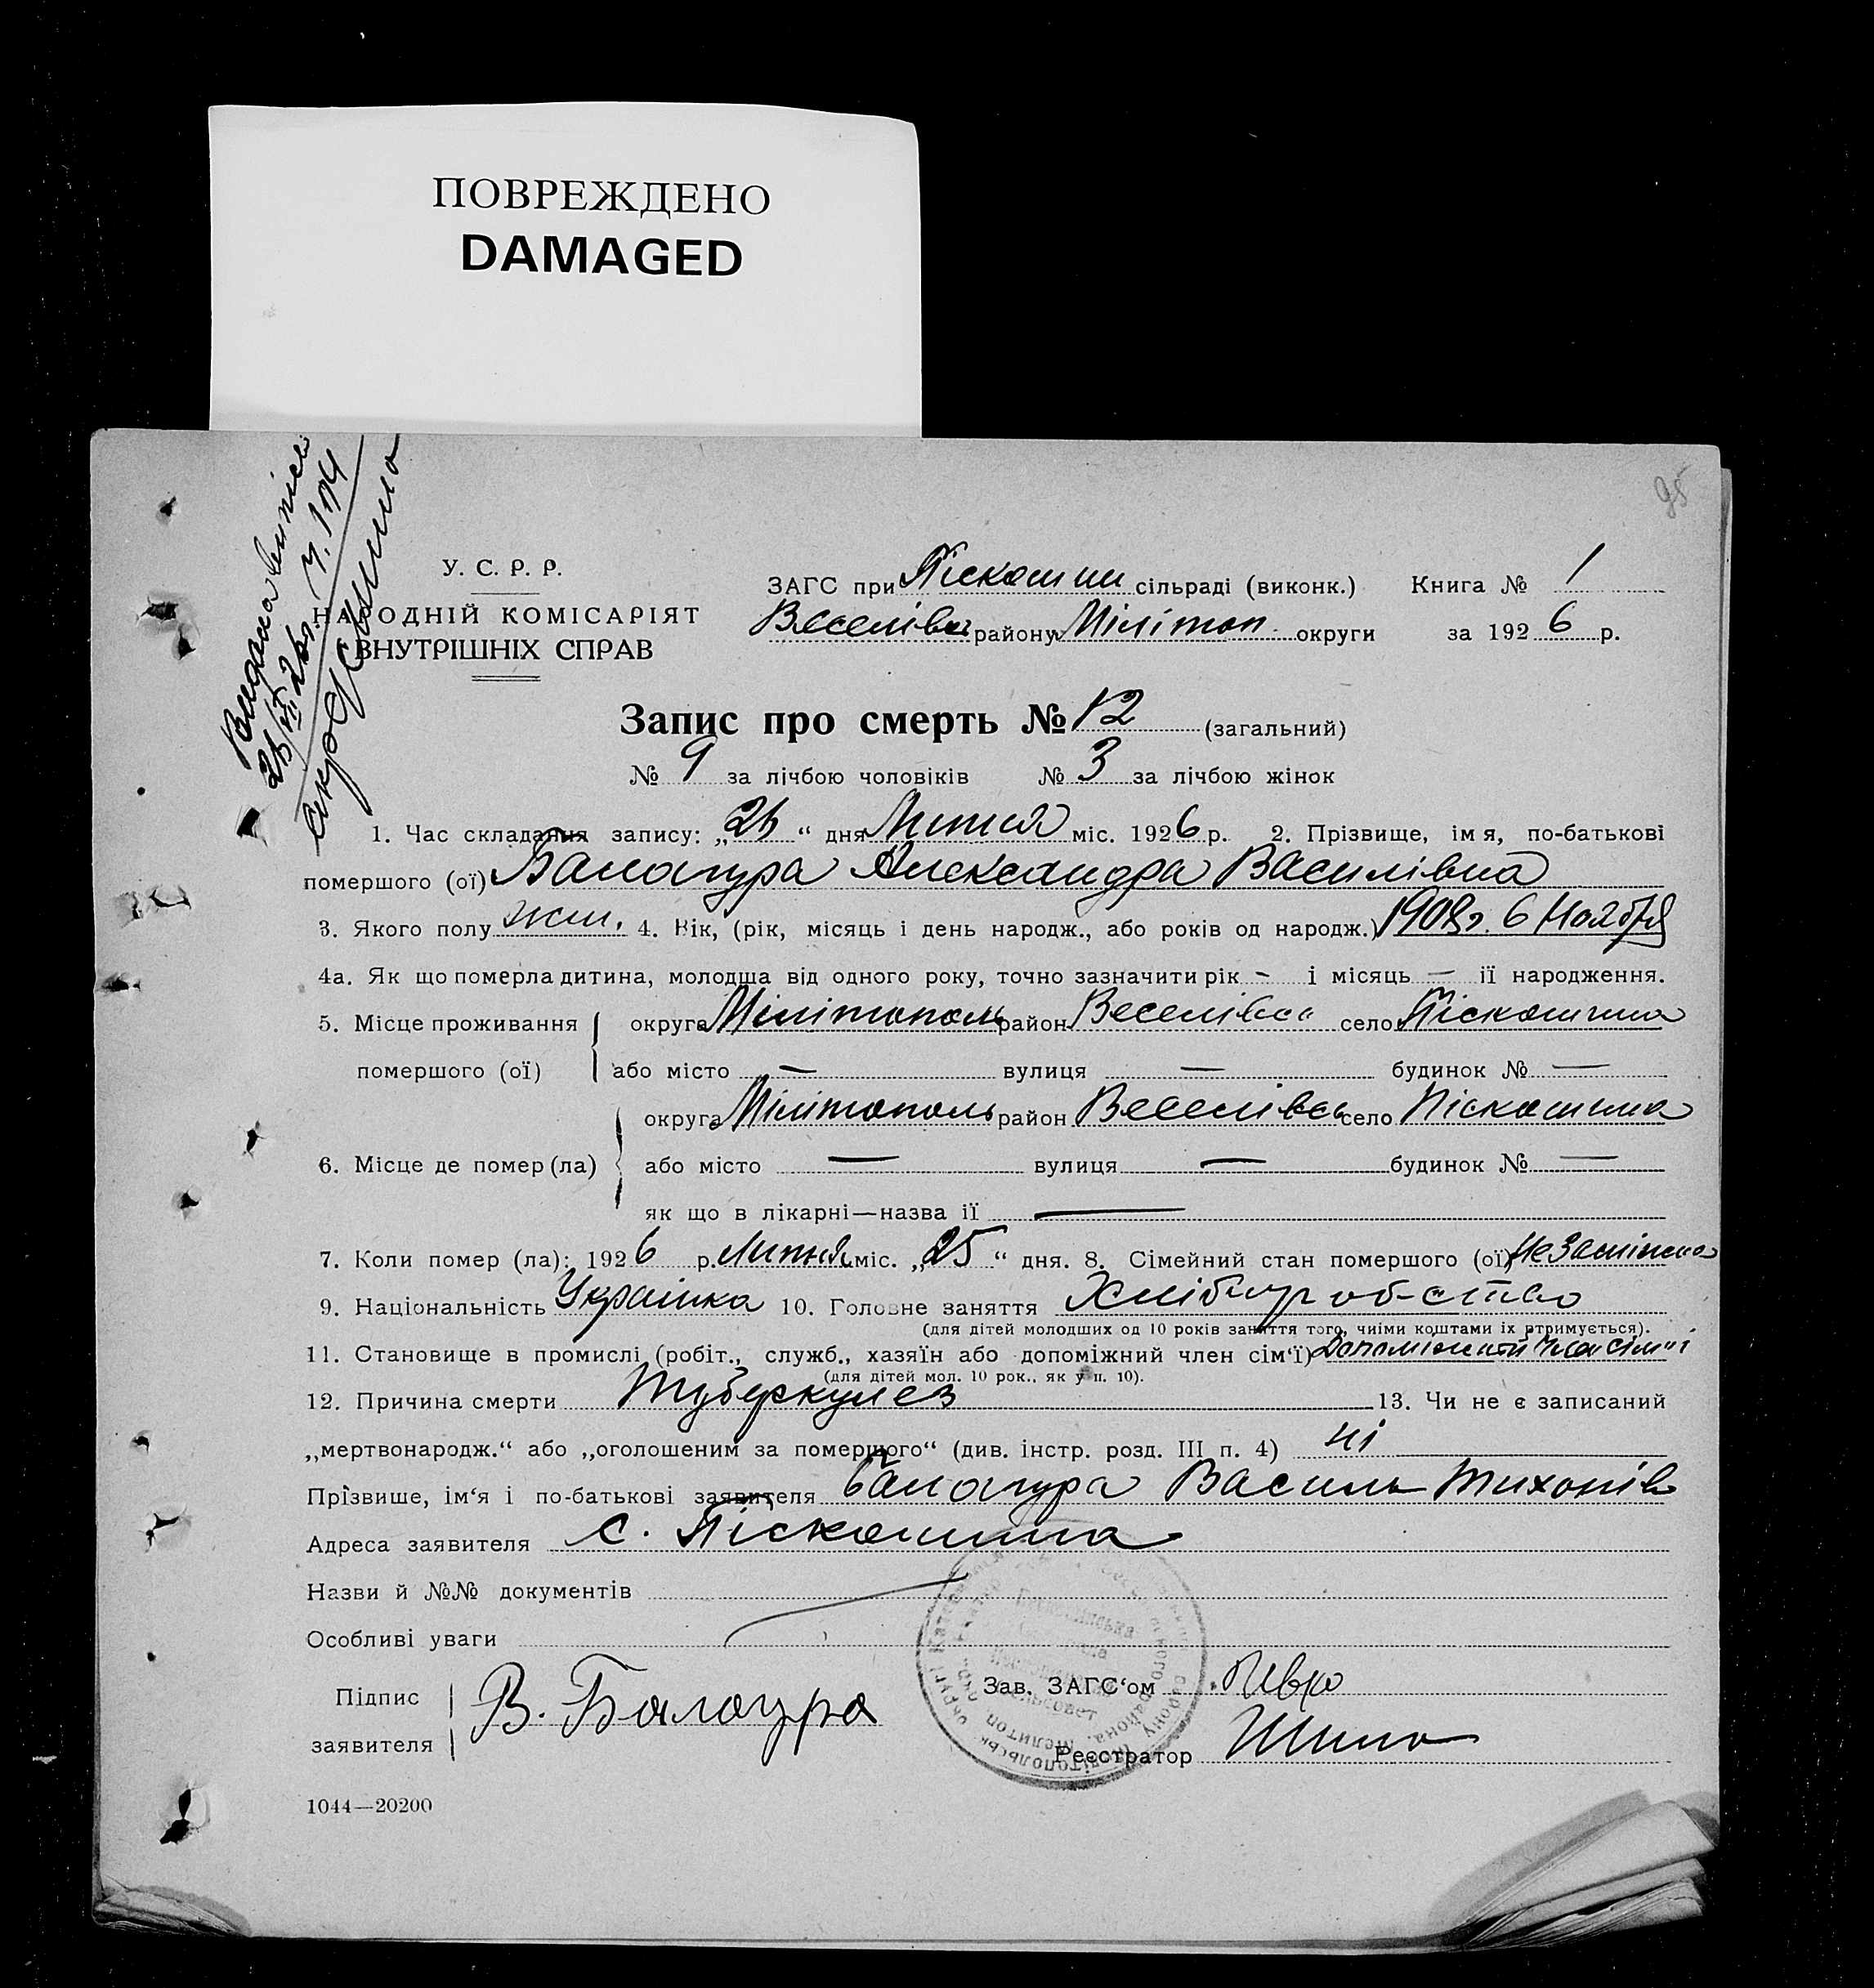 ПОВРЕЖДЕНО
DAMAGED
95
Видана випись
26/VII 26 р. ч. 194
У. С. Р. Р.
НАРОДНІЙ КОМІСАРІЯТ
ВНУТРІШНІХ СПРАВ
ЗАГС при Піскошин сільраді (виконк.) Книга № 1
Веселівсь району Мілітоп. округи за 1926 р.
Запис про смерть № 12 (загальний)
№ 9 за лічбою чоловіків № 3 за лічбою жінок
1. Час складання запису: „26“ дня Липня міс. 1926 р. 2. Прізвище, імя, по-батькові
помершого (ої) Балагура Александра Василівна
3. Якого полу жін. 4. Вік, (рік, місяць і день народж., або років од народж.) 1908 г. 6 Ноября
4а. Як що померла дитина, молодща від одного року, точно зазначити рік — і місяць — ії народження.
5. Місце проживання округа Мілітополь район Веселівсь село Піскошина
помершого (ої) або місто — вулиця — будинок № —
округа Мілітополь район Веселівсь село Піскошина
6. Місце де помер (ла) або місто — вулиця — будинок № —
як що в лікарні—назва ії —
7. Коли помер (ла): 1926 р. Липня міс. „25“ дня. 8. Сімейний стан помершого (ої) Незаміжня
9. Національність Українка 10. Головне заняття Хліборобство
(для дітей молодших од 10 років заняття того, чиїми коштами їх втримується).
11. Становище в промислі (робіт., служб., хазяїн або допоміжний член сім'ї) Допоміжний член сім'ї
(для дітей мол. 10 рок., як у п. 10).
12. Причина смерти Туберкулез 13. Чи не є записаний
„мертвонародж.“ або „оголошеним за помершого“ (див. інстр. розд. III п. 4) ні
Прізвище, ім'я і по-батькові заявителя Балагура Василь Тихонів
Адреса заявителя с. Піскошина
Назви й №№ документів
Особливі уваги
Підпис
заявителя В. Балагура
Зав. ЗАГС'ом
Реєстратор Шило
1044—20200